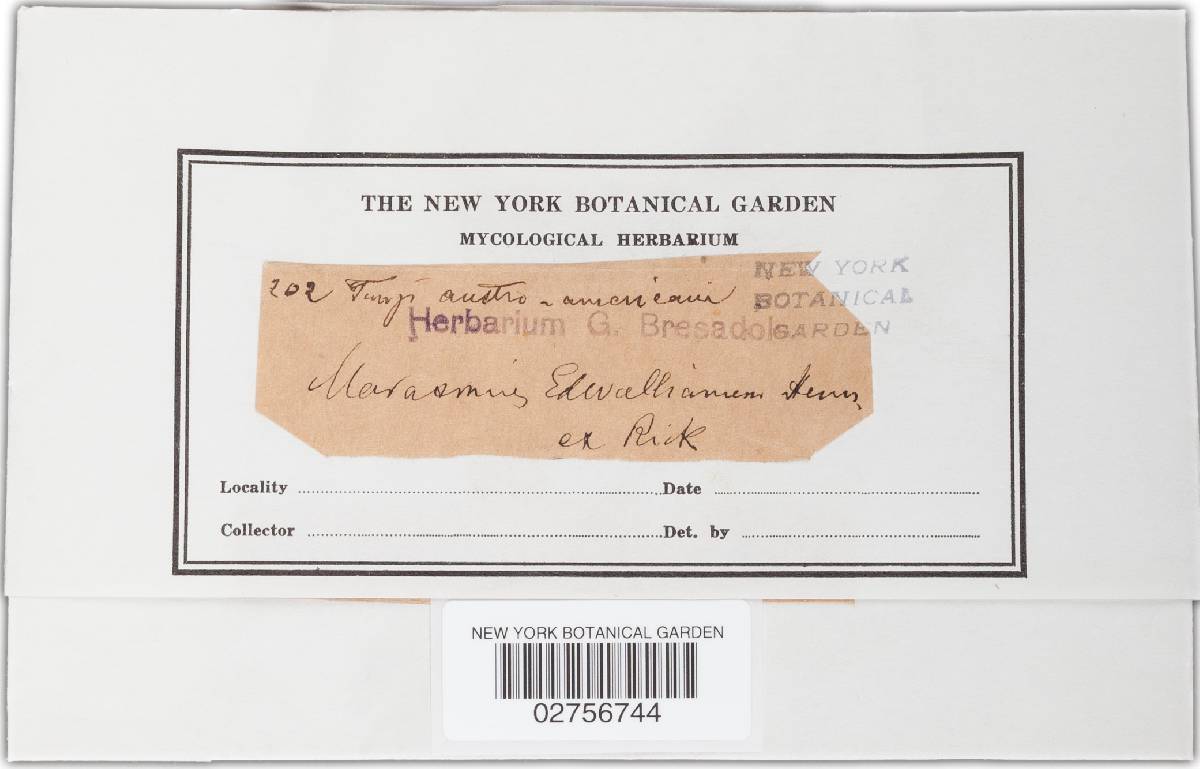 THE NEW YORK BOTANICAL GARDEN
MYCOLOGICAL HERBARIUM
202 Fungi austro-americani
NEW YORK
BOTANICAL
GARDEN
Herbarium G. Bresadola
Marasmius Edwallianus Henn
ex Rick
Locality
Date
Collector
Det. by
NEW YORK BOTANICAL GARDEN
02756744